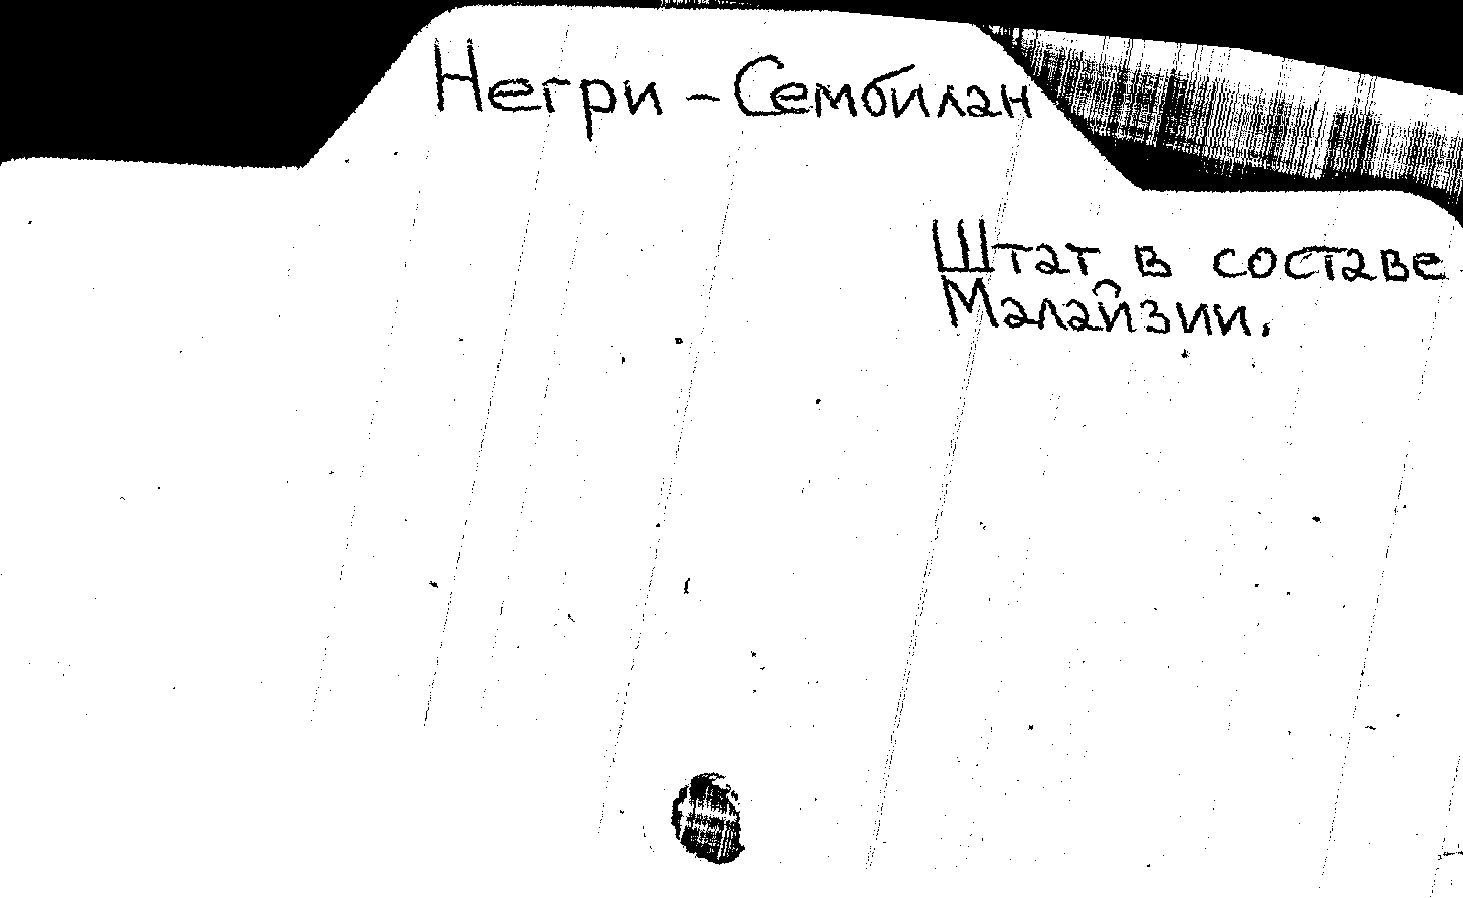 Негри-Сембилан
Штат в составе
Малайзии.